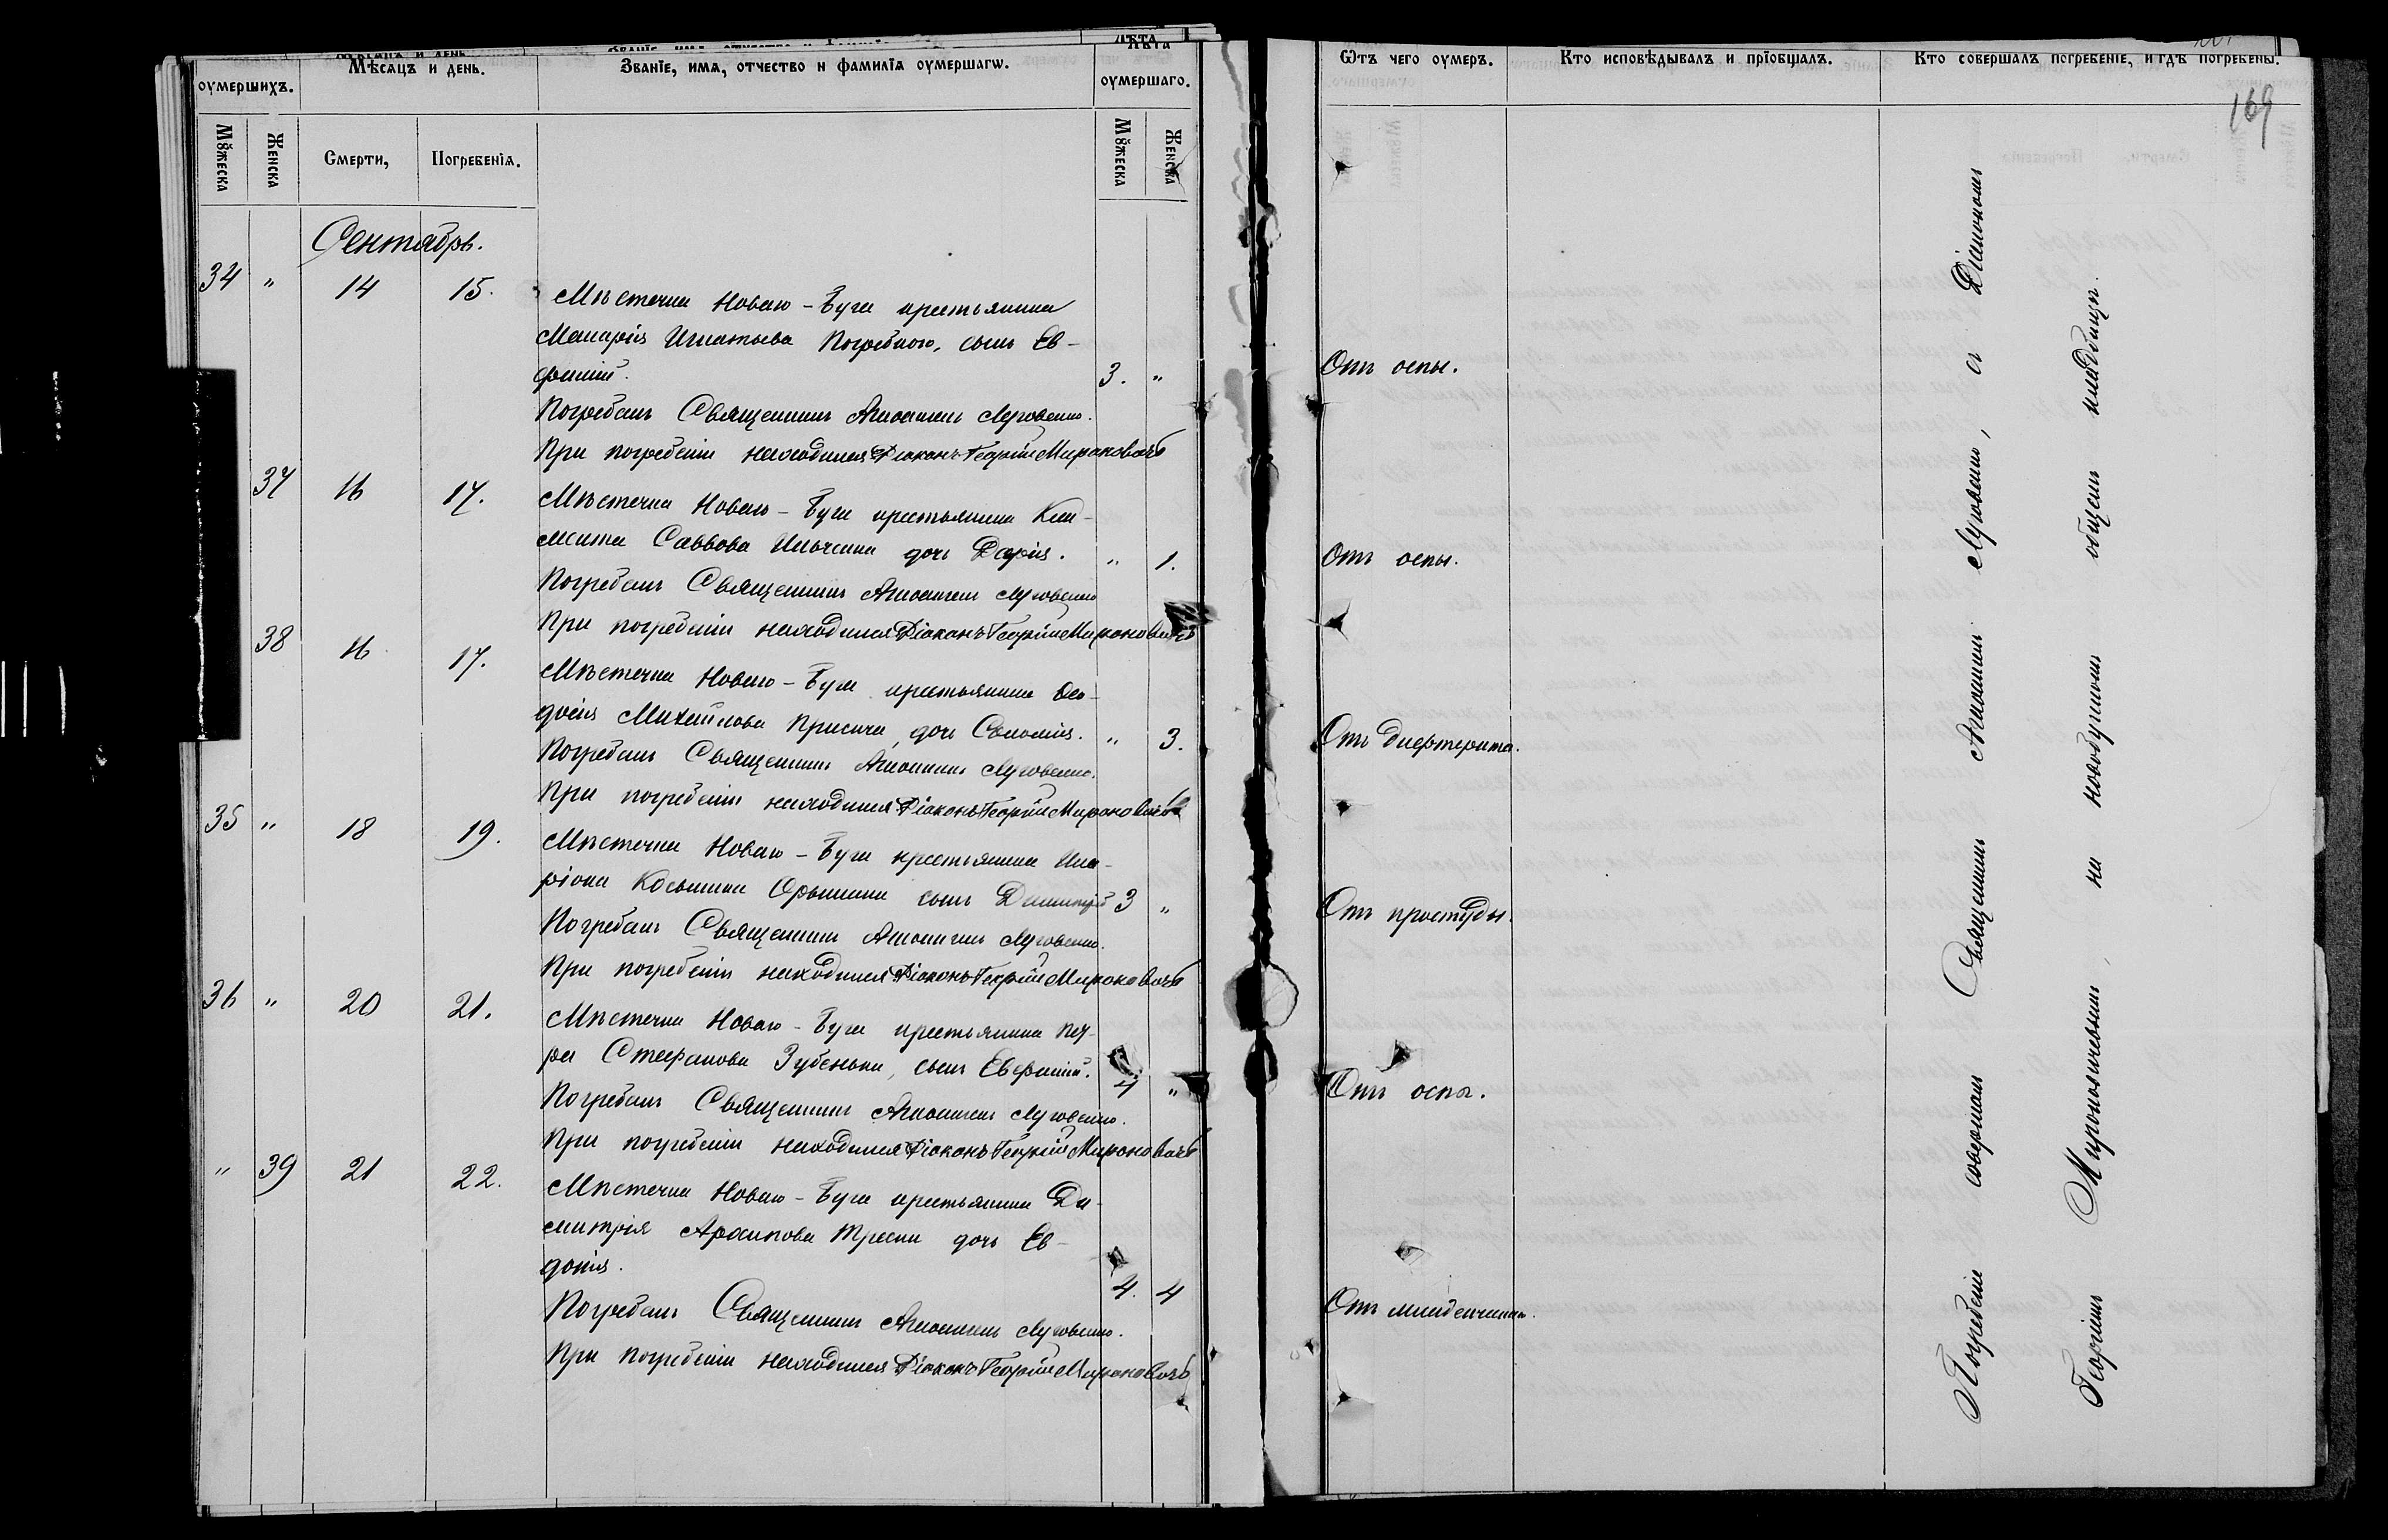 оумершихъ.
Мѣсяцъ и день.
Званїе, имѧ, отчество и фамилїѧ оумершагѡ.
Лѣта
оумершаго.
Мꙋжеска
Женска
Смерти,
Погребенїѧ.
Мꙋжеска
Женска
Сентябрь.
34 " 14 15.
Мѣстечка Новаго-Буга крестьянина
Макарія Игнатьева Погребного, сынъ Ев-
фимій.
3. "
Погребалъ Священникъ Луговенко.
При погребеніи находился Діаконъ Георгій Мироновичъ
37 16 17.
Мѣстечка Новаго-Буга крестьянина Кли-
мента Саввова Ильченка дочь Дарія.
" 1.
Погребалъ Священникъ Луговенко
При погребеніи находился Діаконъ Георгій Мироновичъ
38 16 17.
Мѣстечка Новаго-Буга крестьянина Ѳео-
досія Михайлова дочь
" 3.
Погребалъ Священникъ Луговенко.
При погребеніи находился Діаконъ Георгій Мироновичъ
35 " 18 19.
Мѣстечка Новаго-Буга крестьянина Ила-
ріона Косьмина сынъ Димитрій
3 "
Погребалъ Священникъ Луговенко.
При погребеніи находился Діаконъ Георгій Мироновичъ
36 " 20 21.
Мѣстечка Новаго-Буга крестьянина
Стефанова Зубенька, сынъ Евфимій.
4 "
Погребалъ Священникъ Луговенко.
При погребеніи находился Діаконъ Георгій Мироновичъ
" 39 21 22.
Мѣстечка Новаго-Буга крестьянина Ди-
митрія Архипова дочь Ев-
докія.
4. 4
Погребалъ Священникъ Луговенко.
При погребеніи находился Діаконъ Георгій Мироновичъ
Ѿтъ чего оумеръ.
Кто исповѣдывалъ и прїобщалъ.
Кто совершалъ погребенїе, и гдѣ погребены.
169
Отъ оспы.
Отъ оспы.
Отъ дифтерита.
Отъ простуды.
Отъ оспы.
Отъ младенческ.
Погребеніе совершалъ Священникъ Луговенко, съ Діакономъ
Георгіемъ Мироновичемъ, на новобугскомъ общемъ кладбищѣ.